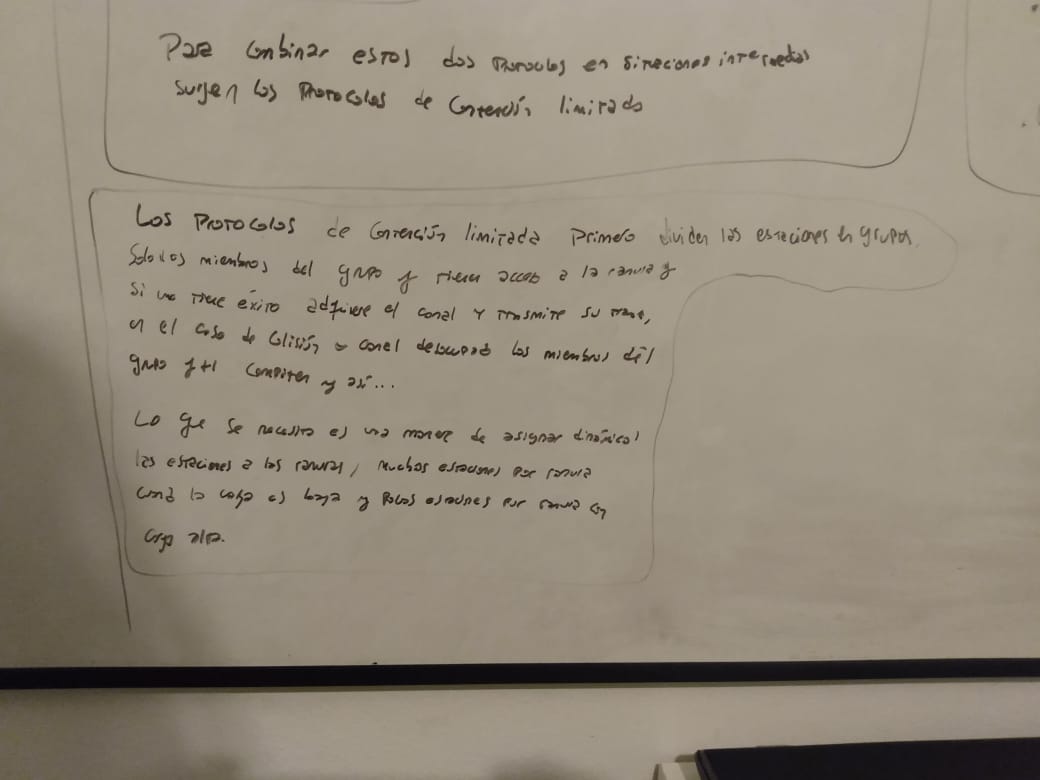 Para combinar estos dos protocolos en situaciones intermedias
surgen los protocolos de Contención limitado
Los Protocolos de Contención limitada Primero dividen las estaciones en grupos.
Solo los miembros del grupo j tienen acceso a la ranura j
Si uno tiene éxito adquiere el canal y transmite su trama,
en el caso de Colisión o canal desocupado los miembros del
grupo j+1 Compiten y así...
Lo que se necesita es una manera de asignar dinámica
las estaciones a las ranuras, muchas estaciones por ranura
cuand la carga es baja y Pocas estaciones por ranura con
carga alta.